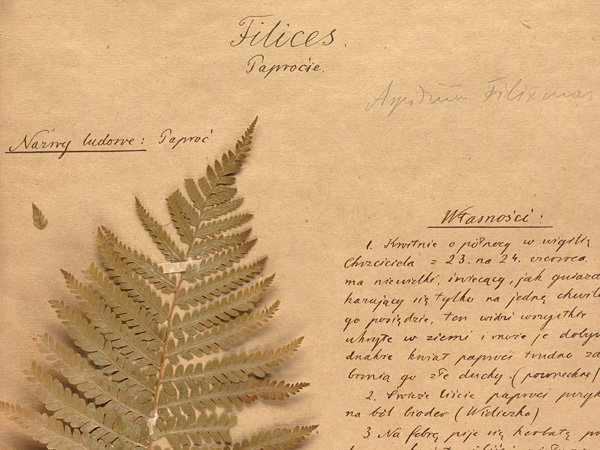 Filices.
Paprocie.
Aspidium Filix mas
Nazwy ludowe: Paproć
Własności:
1. Kwitnie o północy w wigilię
Chrzciciela z 23. na 24. czerwca.
ma niewielki, świecący, jak gwiazd
kazujący się tylko na jedną chwil
go posiędzie, ten widzi wszystkie
ukryte w ziemi i może je dobyw
dnakże kwiat paproci trudno za
bronią go złe duchy (powszechne)
2. Świeże liście paproci
na ból bioder (Wieliczka)
3 Na febrę pije się herbatę